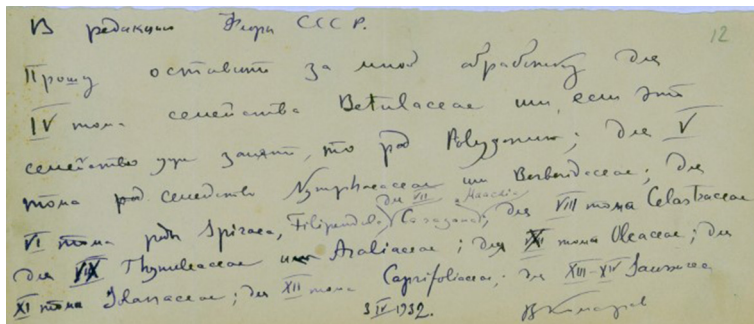 В редакцию Флоры СССР. 12
Прошу оставить за мной обработку для
IV тома семейства Betulaceae или, если это
семейство уже занято, то род Polygonum; для V
тома семейства Nymphaeaceae или Berberidaceae; для
для VII Maackia
VI тома роды Spiraea, Filipendula, Caragana; для VIII тома Celastraceae
для IX Thymeleaceae Araliaceae; для XI тома Oleaceae; для
XI тома Solanaceae; для XII тома Caprifoliaceae; для XIII-XIV Saussurea
3 IV 1932. В Комаров